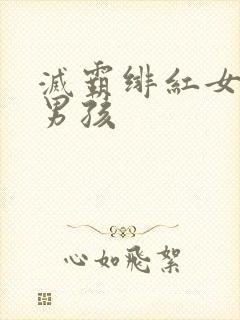 滅霸绯紅女
男孩
心如飛絮